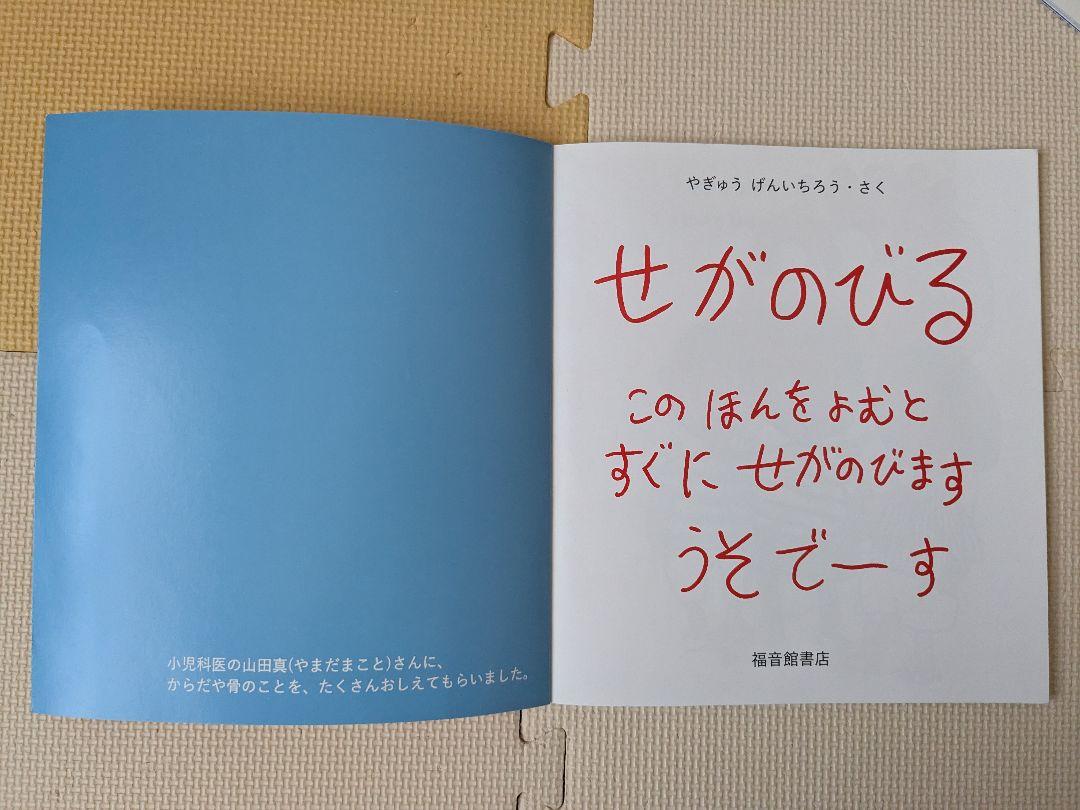 小児科医の山田真(やまだまこと)さんに、
からだや骨のことを、たくさんおしえてもらいました。
やぎゅう げんいちろう・さく
せがのびる
このほんをよむと
すぐに せがのびます
うそでーす
福音館書店